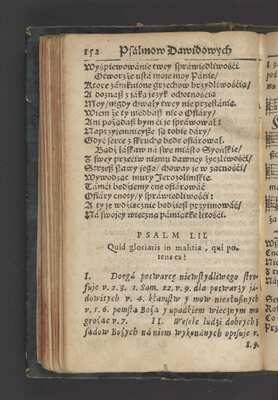 152 Psalmow Dawidowych
Wyśpiewowanie twoy spráwiedliwośći.
Otworzże vstá moie moy Pánie/
Ktore zámknione grzechow brzydliwośćią/
A doznaß z iáką ięzyk ochotnośćią
Moy/ nigdy chwały twey nie przestánie.
Wiem że ty niedbaß nic o Ofiáry/
Ani pożądaß bym ći ie spráwował:
Naprzyiemnieyße są tobie dáry/
Gdy serce z skruchą będę ofiárował.
Bądź łáskaw ná swe miásto Syońskie/
Z swey przećiw niemu dawney życzliwośći/
Strzeż sławy iego/ choway ie w zacnośći/
Wywodząc mury Jerozolimskie.
Támći będźiemy cne ofiárowáć
Ofiáry cnoty/ y spráwiedliwośći:
A ty ie wdźięcznie będźieß przyimowáć/
Ná swoiey wieczną pámiątkę litośći.
PSALM LII.
Quid gloriaris in malitia, qui po-
tens es?
I. Doegá potwarcę niewstydliwego stro-
fuie v. 2. 3. 1. Sam. 22. v. 9. dla potwarzy iá-
dowitych v. 4. kłamstw y mow niesłusznych
v. 5. 6. pomstą Bożą y vpadkiem wiecznym mu
grożąc v. 7. II. Wesele ludźi dobrych z
sądow Bożych ná niem wykonánych opisuie v.
8. 9.